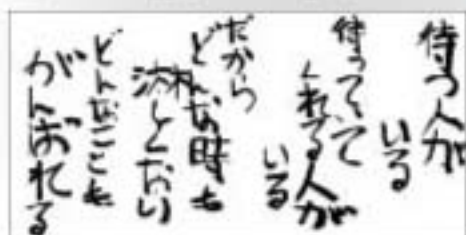 待つ人が
いる
待ってて
くれる人が
いる
だから
どんな時も
淋しくない
どんなことも
がんばれる